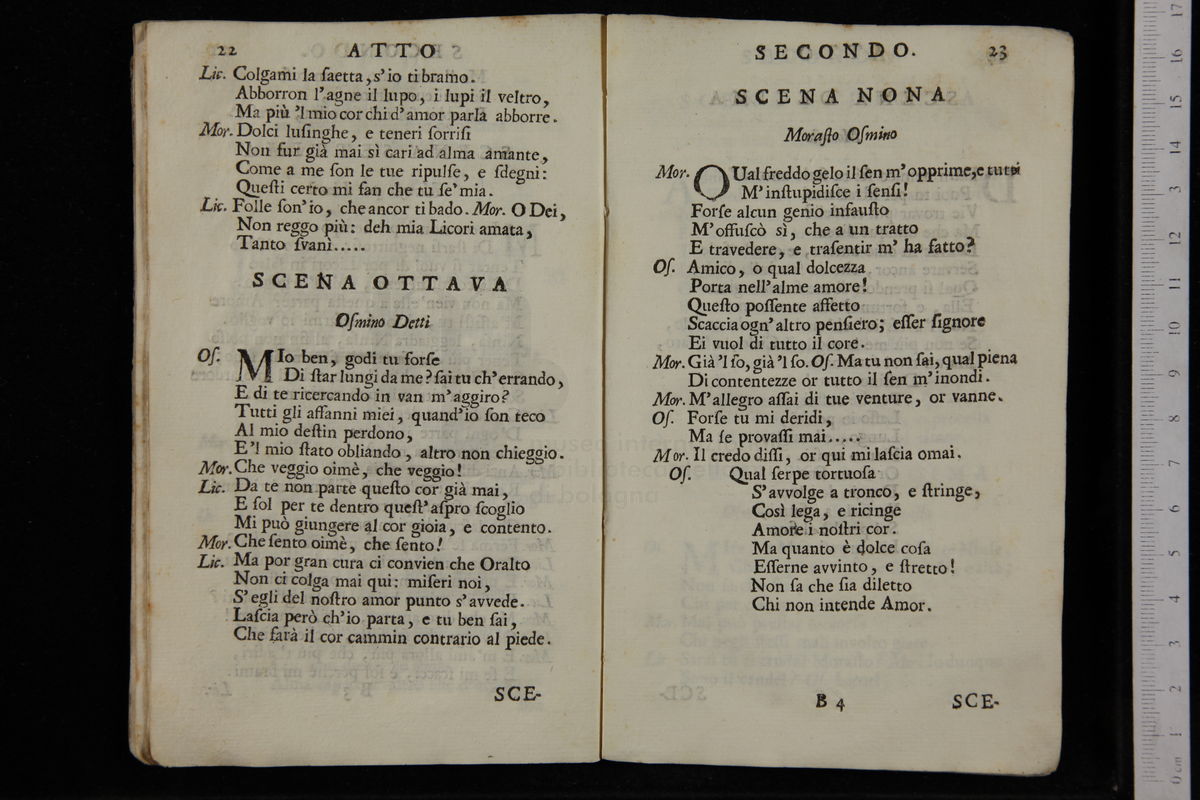 22 ATTO
Lic. Colgami la ſaetta, s'io ti bramo.
Abborron l'agne il lupo, i lupi il veltro,
Ma più 'l mio cor chi d'amor parla abborre.
Mor. Dolci luſinghe, e teneri ſorriſi
Non fur già mai sì cari ad alma amante,
Come a me ſon le tue ripulſe, e ſdegni:
Queſti certo mi fan che tu ſe' mia.
Lic. Folle ſon' io, che ancor ti bado. Mor. O Dei,
Non reggo più: deh mia Licori amata,
Tanto ſvanì.....
SCENA OTTAVA
Oſmino Detti
Oſ. MIo ben, godi tu forſe
Di ſtar lungi da me? ſai tu ch'errando,
E di te ricercando in van m'aggiro?
Tutti gli affanni miei, quand'io ſon teco
Al mio deſtin perdono,
E'l mio ſtato obliando, altro non chieggio.
Mor. Che veggio oimè, che veggio!
Lic. Da te non parte queſto cor già mai,
E ſol per te dentro queſt'aſpro ſcoglio
Mi può giungere al cor gioia, e contento.
Mor. Che ſento oimè, che ſento!
Lic. Ma por gran cura ci convien che Oralto
Non ci colga mai qui: miſeri noi,
S'egli del noſtro amor punto s'avvede.
Laſcia però ch'io parta, e tu ben ſai,
Che farà il cor cammin contrario al piede.
SCE-
SECONDO. 23
SCENA NONA
Moraſto Oſmino
Mor. QUal freddo gelo il ſen m'opprime, e tutti
M'inſtupidiſce i ſenſi!
Forſe alcun genio infauſto
M'offuſcò sì, che a un tratto
E travedere, e traſentir m'ha fatto?
Oſ. Amico, o qual dolcezza
Porta nell'alme amore!
Queſto poſſente affetto
Scaccia ogn'altro penſiero; eſſer ſignore
Ei vuol di tutto il core.
Mor. Già 'l ſo, già 'l ſo. Oſ. Ma tu non ſai, qual piena
Di contentezze or tutto il ſen m'inondi.
Mor. M'allegro aſſai di tue venture, or vanne.
Oſ. Forſe tu mi deridi,
Ma ſe provaſſi mai.....
Mor. Il credo diſſi, or qui mi laſcia omai.
Oſ. Qual ſerpe tortuoſa
S'avvolge a tronco, e ſtringe,
Così lega, e ricinge
Amore i noſtri cor.
Ma quanto è dolce coſa
Eſſerne avvinto, e ſtretto!
Non ſa che ſia diletto
Chi non intende Amor.
B 4 SCE-